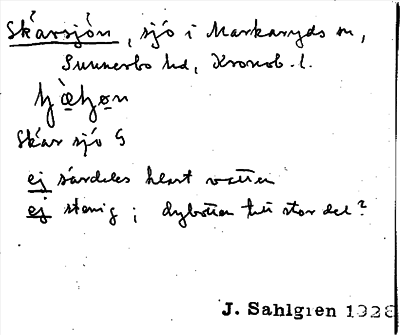 Skärsjön, sjö i Markaryds sn,
Sunnerbo hd, Kronob. l.
Skär sjö G
ej särdeles klart vatten
ej stenig; dybotten till stor del?
J. Sahlgren 1928